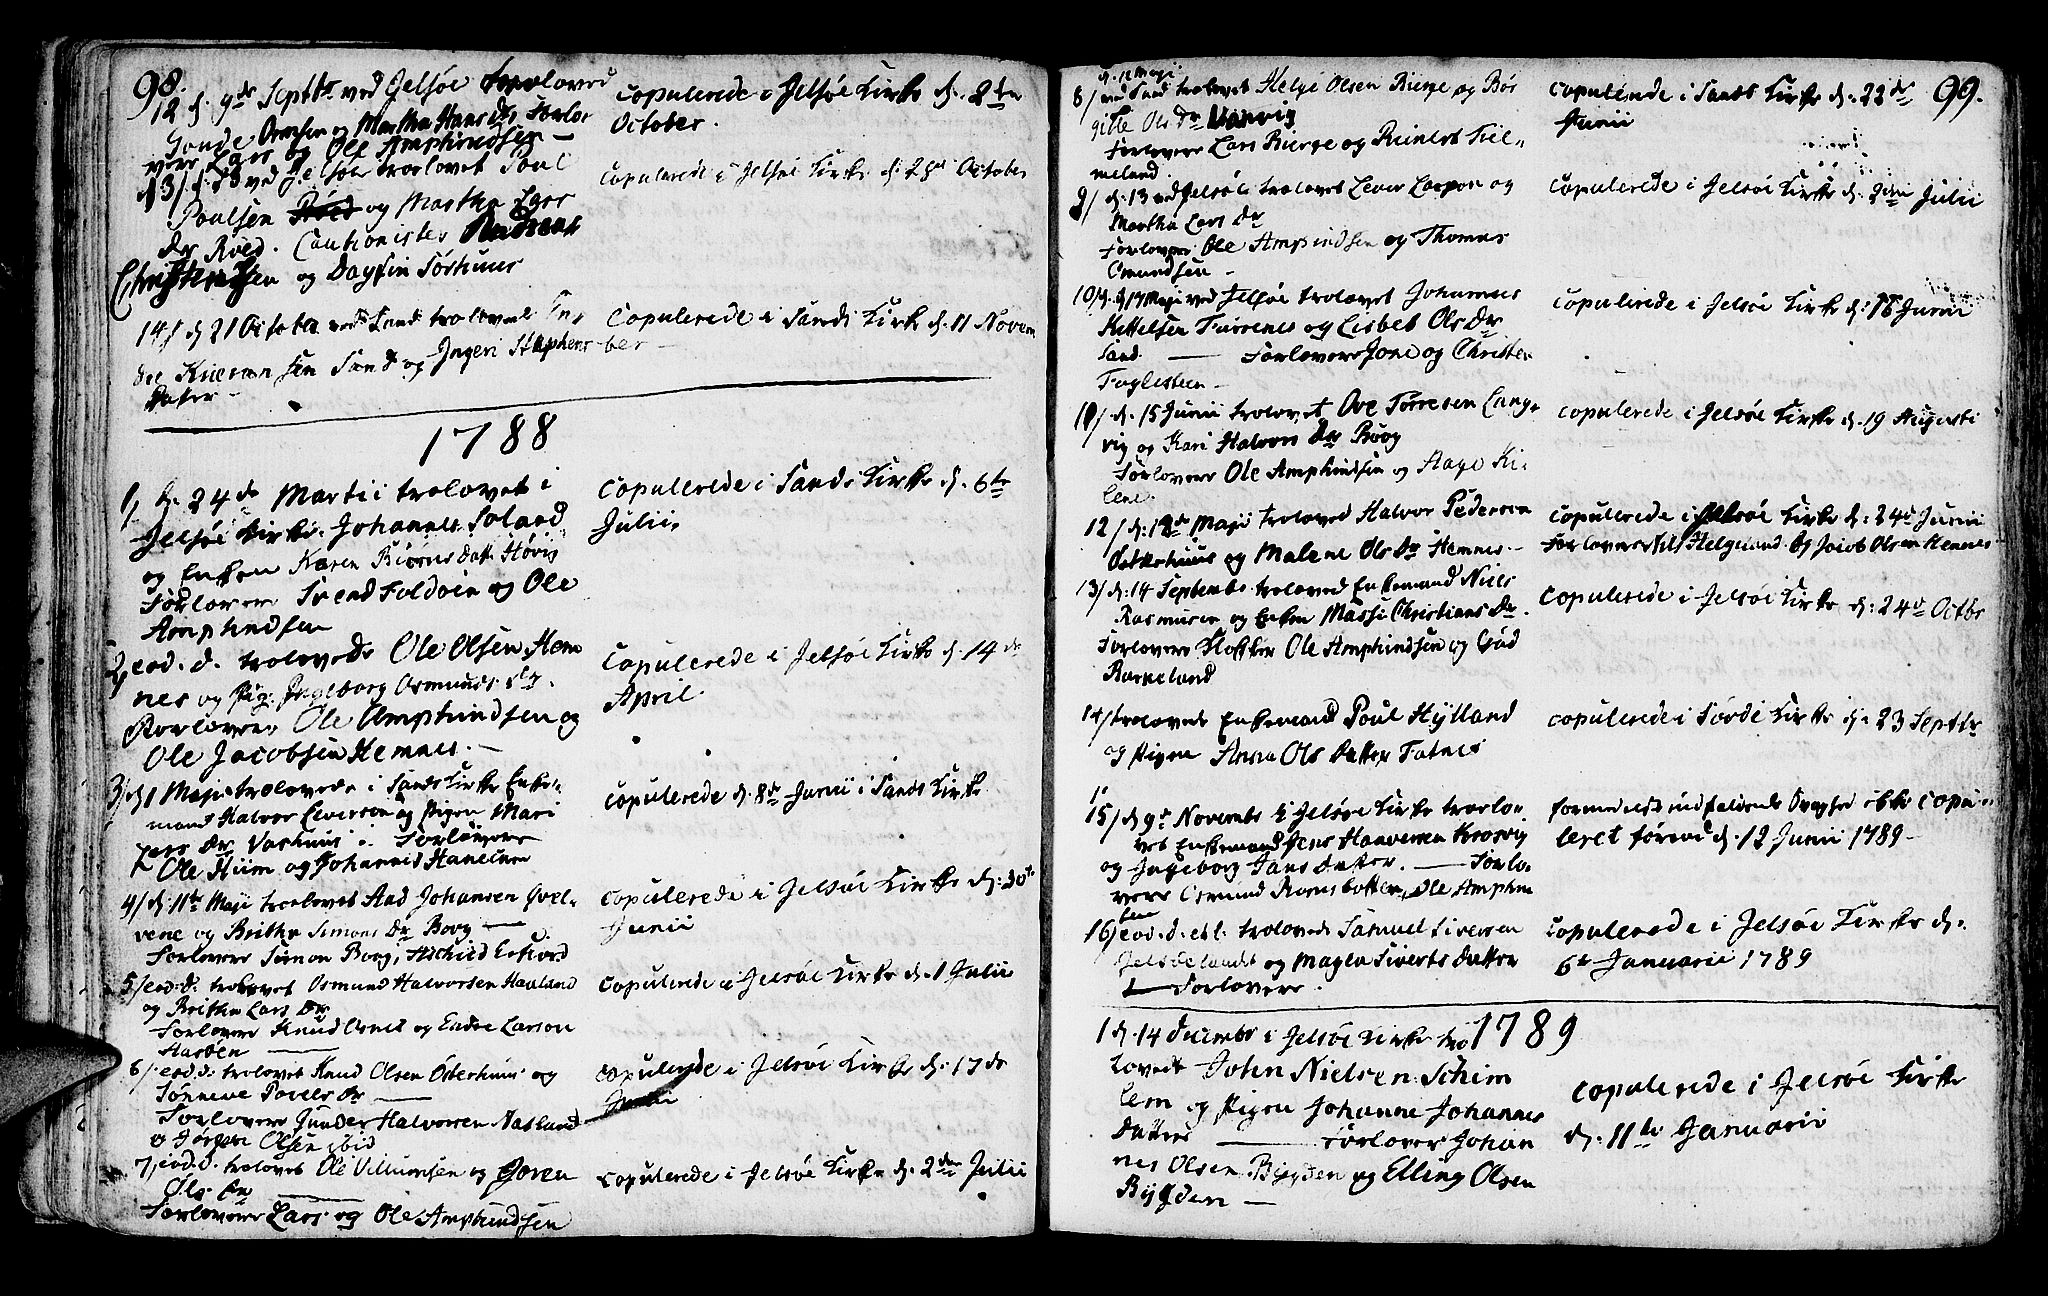 98.
12 d. 9de Septbr ved Jelsøe troloved
Gunde Ormsen og Martha Hans Dr Forlo
vere Lars og Ole Amphindsen
13/ d. ved Jelsøe trolovet Poul
Poulsen og Martha Lars
Dr Røed. Cautionister
Christensen og Dagfin
copulerede i Jelsøe Kirke d. 2den
October.
copulerede i Jelsøe Kirke d. 28de October
14/ d. 21 October ved Sand trolovet
Sand og Ingeri Stephens
Datter
Copulerede i Sands Kirke d. 11 Novem
ber
1788
1, d. 24de Martii trolovet i
Jelsøe Kirke Johannes Soland
og Enken Karen Biørns Datt. Høvig
Forlovere Svend Foldøen og Ole
Amphindsen
copulerede i Sands Kirke d. 6te
Julii.
2, eod. d. trolovede Ole Olsen Hem
nes og Pig. Ingeborg Osmunds dtr.
Forlovere Ole Amphindsen og
Ole Jacobsen Hemnes.
copulerede i Jelsøe Kirke d. 14de
April.
3, d. 1 Maji trolovede i Sands Kirke Enke-
mand Halvor Eversen og Pigen Mari
Lars Dr Forlovere
Ole Hiim og Johannes
copulerede d. 8de Junii i Sands Kirke
4/ d. 11te Maji trolovet Aad Johansen Qvel-
vene og Brithe Simons Dr Borg
Forlovere Simon Borg,
copulerede i Jelsøe Kirke d. 30te
Junii
5/ eod. d. trolovet Osmund Halvorsen Hauland
og Brithe Lars Dr
Forlovere Knud og Endre Larson
copulerede i Jelsøe Kirke d. 1 Julii
6/ eod. d. trolovet Knud Olsen Østerhuus og
Sønneve Povels Dr
Forlovere Gunder Halvorsen Nasland
og Jørgen Olsen ibid
copulerede i Jelsøe Kirke d. 17de
Junii
7, eod. d. trolovet Ole Villumsen og Joren
Ols Dr
Forlovere Lars og Ole Amphindsen
copulerede i Jelsøe Kirke d. 2den Julii
99.
d. 12 Maji
8/ ved Sand trolovet Helge Olsen Bierge og Bør
gitte Ols Dr
Forlovere Lars Bierge og Reinert Tiel-
meland.
copulerede i Sands Kirke d. 22de
Junii
9/ d. 13 ved Jelsøe trolovet Lever Larson og
Martha Lars Dr
Forlovere Ole Amphindsen og Thomas
Osmundsen
copulerede i Jelsøe Kirke d. 2den Julii
10/ d. 17 Maji ved Jelsøe trolovet Johannes
Kittelsen og Lisbet Ols Dr
Sand. Forlovere Jone og Christen
Fuglesteen
copulerede i Jelsøe Kirke d. 18 Junii
11/ d. 15 Junii trolovet Ove Torresen Lang-
vig og Kari Halvors Dr Borg
Forlovere Ole Amphindsen og Aage Ki-
lene.
copulerede i Jelsøe Kirke d. 19 Augusti
12/ d. 12de Maji trolovet Halvor Pedersen
Østerhuus og Malene Ols Dr Hemnes.
copulerede i Jelsøe Kirke d. 24de Junii
Forlovere Nils Helgeland og Jacob Olsen Hemnes
13/ d. 14 Septembr trolovede Enkemand Niels
Rasmusen og Enken Massi Christians Dr.
Forlovere Klokker Ole Amphindsen og Gud
Barkeland
copulerede i Jelsøe Kirke d. 24de Octbr
14/ trolovede Enkemand Poul Hylland
og Pigen Anna Ols Datter Fatnes
copulerede i Jelsøe Kirke d. 23 Septbr
15/ d. 9de Novembr i Jelsøe Kirke trolo-
vet Enkemand Jens Haaversen Krosvig
og Ingeborg Jans Datter. Forlo-
vere Osmund Ramsbotten, Ole Amphin
sen
formedelst indfaldende Svaghed ikke copu-
leret førend d. 12 Junii 1789
16/ eod. d. etl. trolovede Samuel Siversen
Jelsøelandt og Magla Siverts Datter
Forlovere.
copulerede i Jelsøe Kirke d.
6te Januarii 1789
1789
1 d. 14 Decembr i Jelsøe Kirke tro
lovede John Nielsen Schim
lem og Pigen Johanne Johannes
Datter Forlover Johan
nes Olsen Bygden og Elling Olsen
Bygden
copulerede i Jelsøe Kirke
d. 11te Januarii